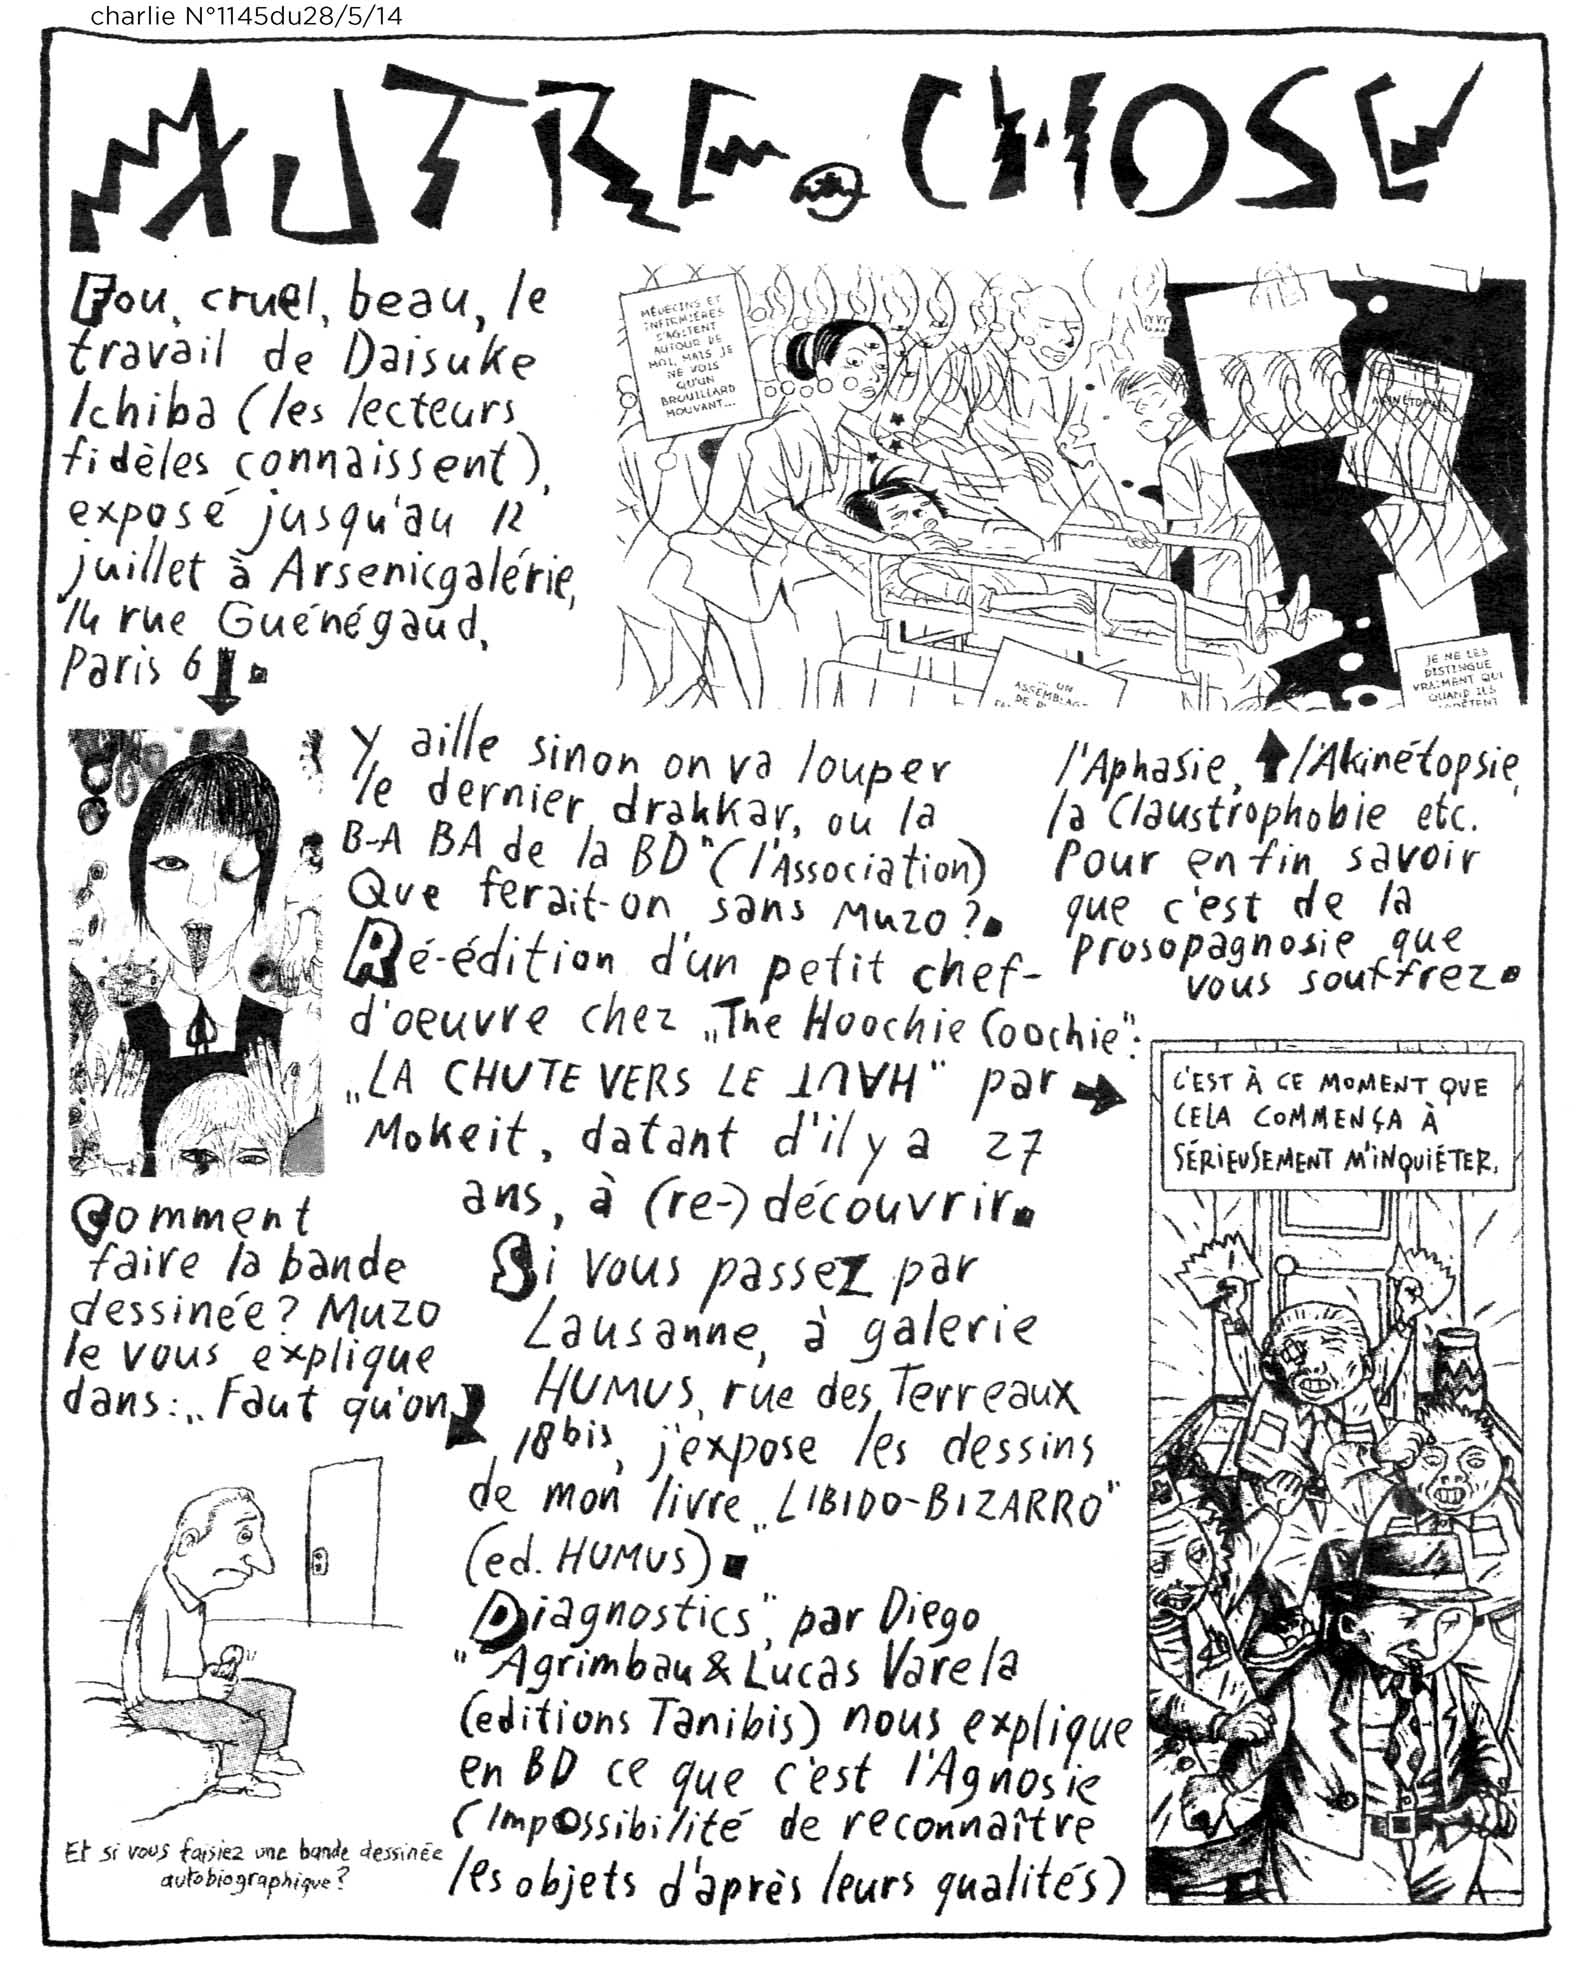 charlie N°1145du28/5/14
AUTRE CHOSE
Fou, cruel, beau, le
travail de Daisuke
Ichiba (les lecteurs
fidèles connaissent),
exposé jusqu'au 12
juillet à Arsenicgalérie,
14 rue Guénégaud,
Paris 6
MÉDECINS ET
INFIRMIÈRES
S'AGITENT
AUTOUR DE
MOI, MAIS JE
NE VOIS
QU'UN
BROUILLARD
MOUVANT...
AKINÉTOPSIE
... UN
ASSEMBLAGE
DE
JE NE LES
DISTINGUE
VRAIMENT QUI
QUAND ILS
Comment
faire la bande
dessinée? Muzo
le vous explique
dans: „Faut qu'on
Y aille sinon on va louper
le dernier drakkar, ou la
B-A BA de la BD" (l'Association)
Que ferait-on sans Muzo?
Ré-édition d'un petit chef-
d'oeuvre chez „The Hoochie Coochie":
„LA CHUTE VERS LE HAUT" par
Mokeit, datant d'il y a 27
ans, à (re-) découvrir.
Si vous passez par
Lausanne, à galerie
HUMUS, rue des Terreaux
18bis, j'expose les dessins
de mon livre „LIBIDO-BIZARRO"
(ed. HUMUS)
"Diagnostics", par Diego
Agrimbau & Lucas Varela
(editions Tanibis) nous explique
en BD ce que c'est l'Agnosie
(Impossibilité de reconnaître
les objets d'après leurs qualités)
l'Aphasie, l'Akinétopsie,
la Claustrophobie etc.
Pour enfin savoir
que c'est de la
prosopagnosie que
vous souffrez
C'EST À CE MOMENT QUE
CELA COMMENÇA À
SÉRIEUSEMENT M'INQUIÉTER.
Et si vous faisiez une bande dessinée
autobiographique?